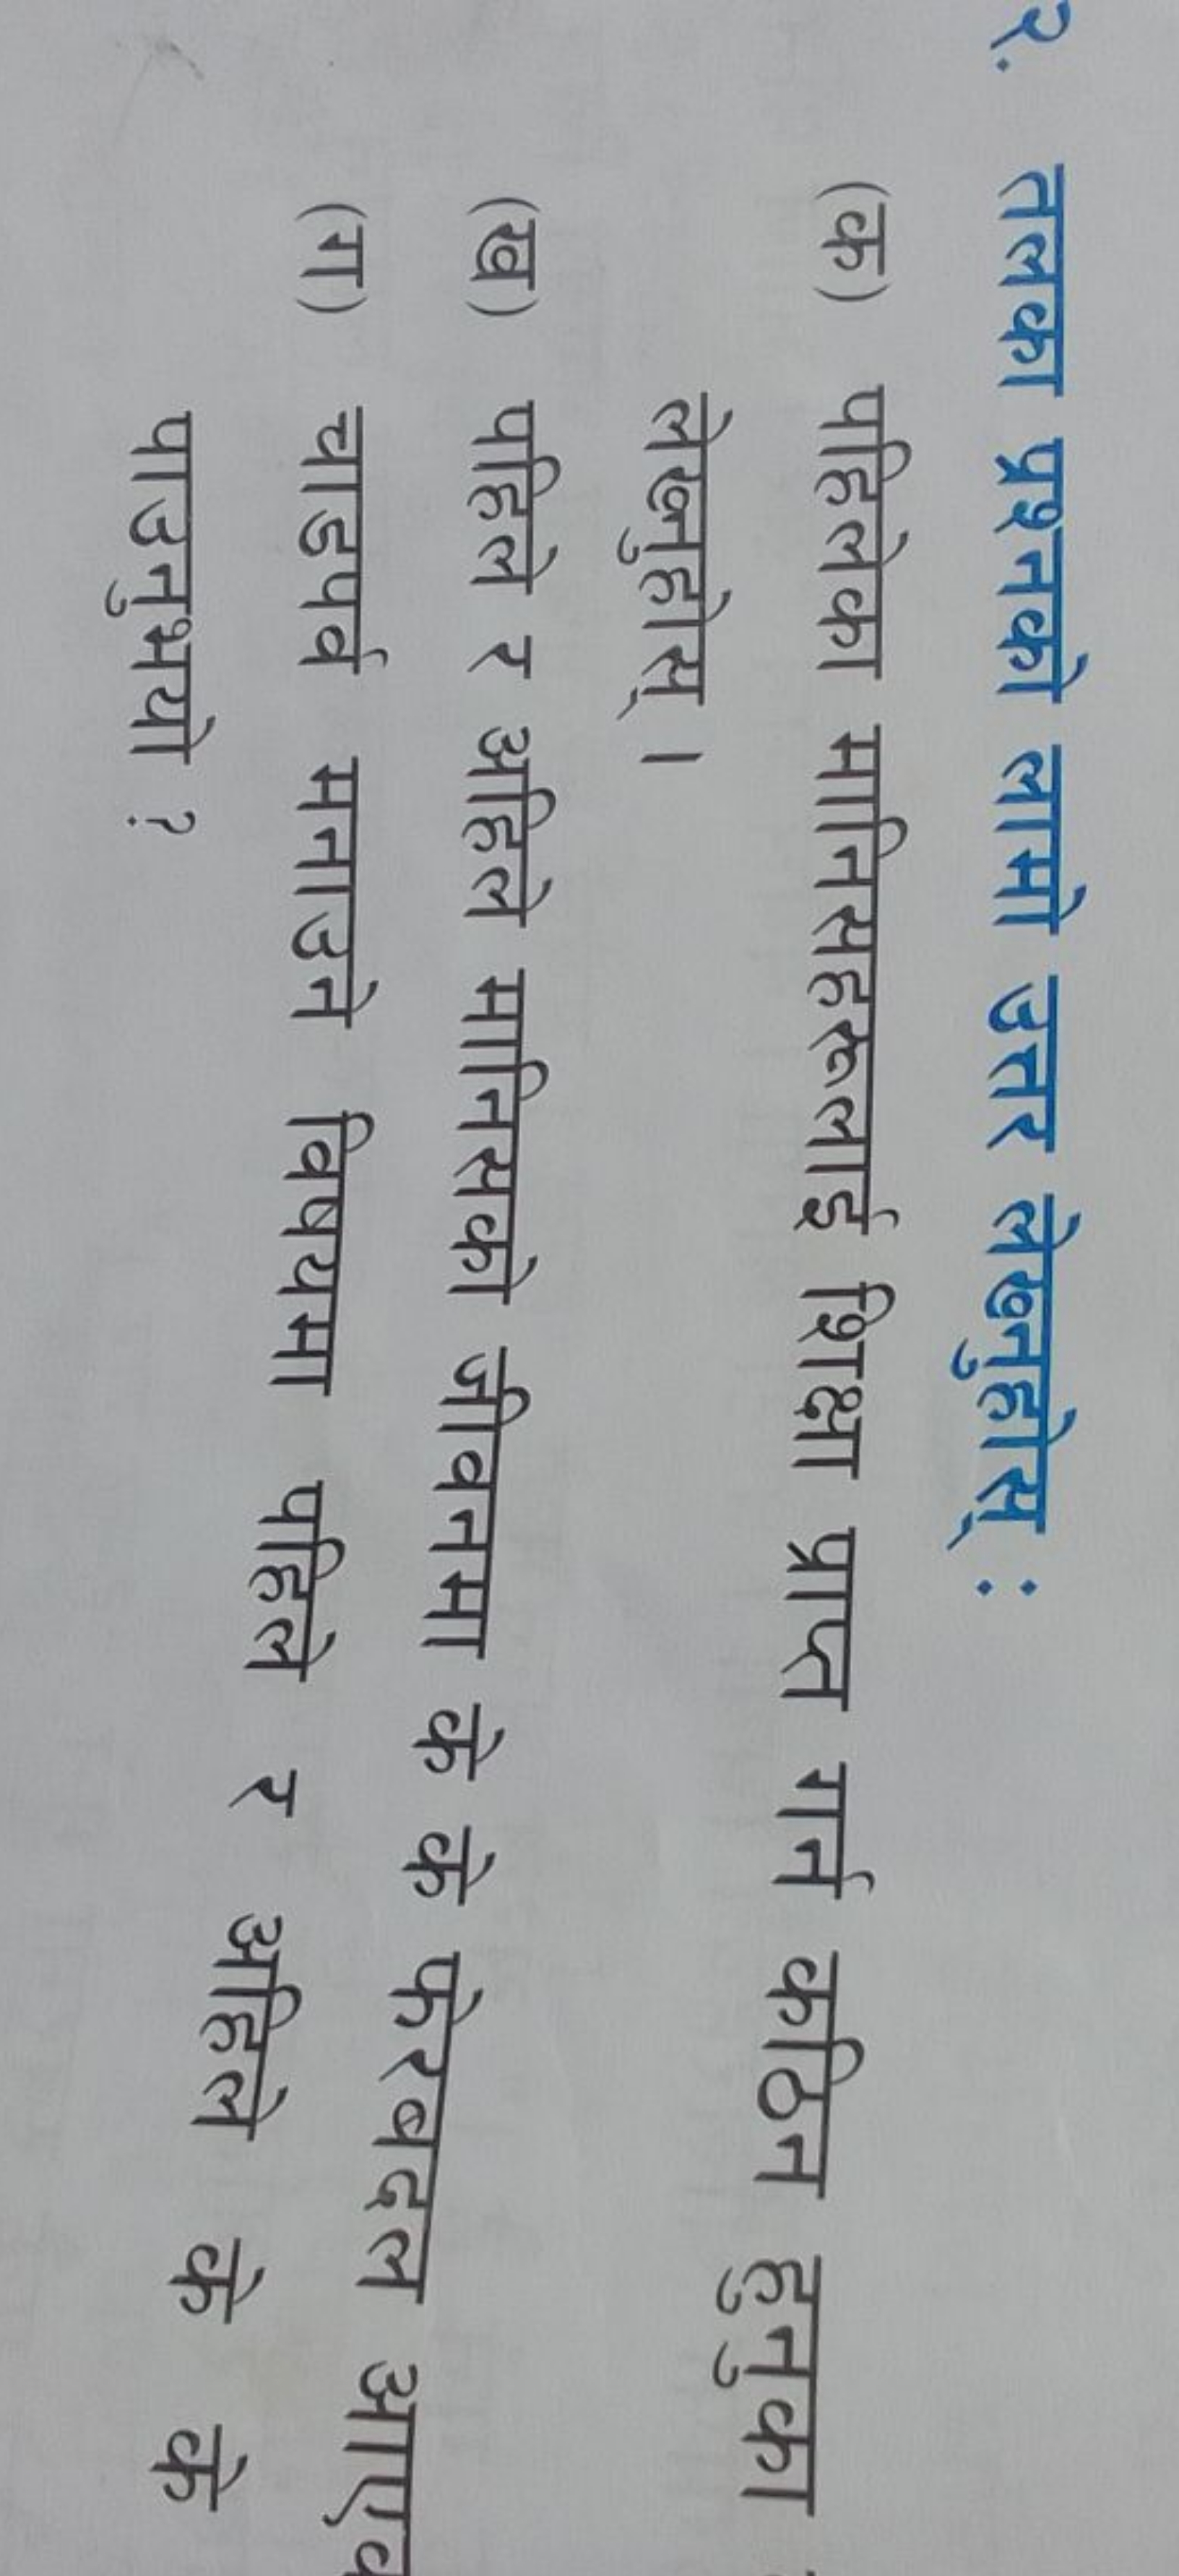 २. तलका प्रश्नको लामो उत्तर लेख्नुहोस् :
(क) पहिलेका मानिसहरूलाई शिक्षा प्राप्त गर्न कठिन हुनुका
लेख्नुहोस् ।
(ख) पहिले र अहिले मानिसको जीवनमा के के फेरबदल
(ग) चाडपर्व मनाउने विषयमा पहिले र अहिले के के
पाउनुभयो ?